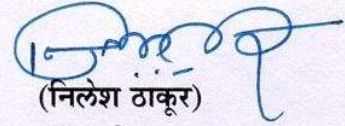 (निलेश ठाकूर)